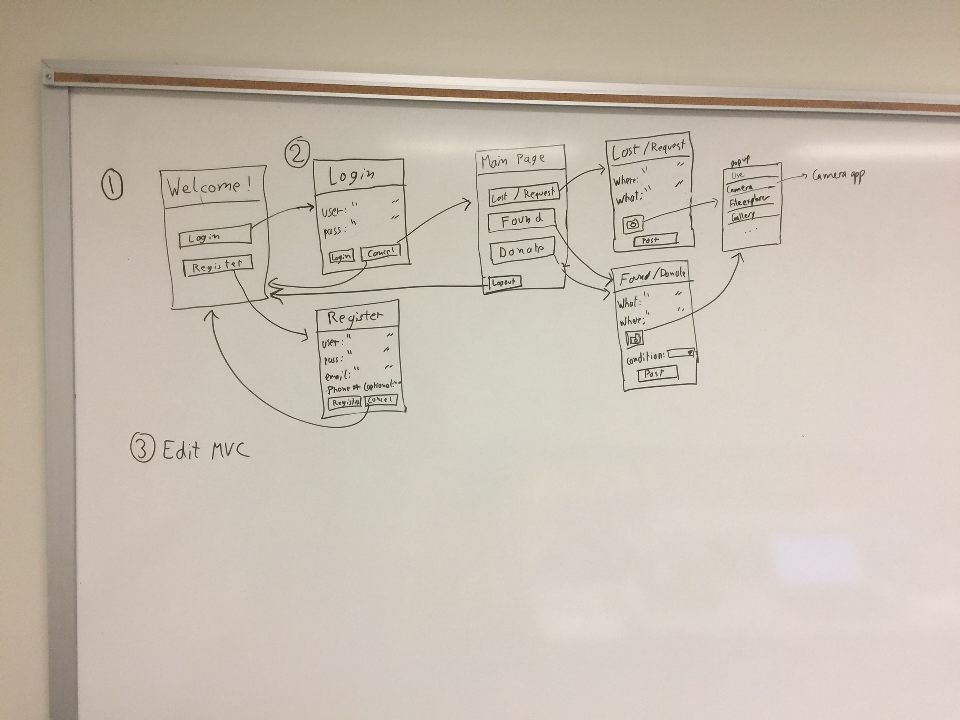 ①
Welcome!
Login
Register
②
Login
user: " "
pass: " "
Login Cancel
Register
user: " "
pass: " "
email: " "
Phone # (optional): " "
Register Cancel
Main Page
Lost / Request
Found
Donate
Logout
Lost / Request
Where: " "
What: " "
Post
Found / Donate
What: " "
Where: " "
condition:
Post
popup
Use
Camera
File explorer
Gallery
...
Camera app
③ Edit MVC